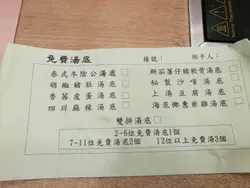 免費湯底 檯號： 經手人：
泰式冬陰公湯底□ 鮮茄薯仔豬軟骨湯底□
胡椒豬肚湯底□ 秘製沙嗲湯底□
香茜皮蛋湯底□ 上湯豆腐湯底□
四川麻辣湯底□ 海底椰薏米雞湯底□
雙拼湯底□
2-6位免費湯底1個
7-11位免費湯底2個 12位以上免費湯3個